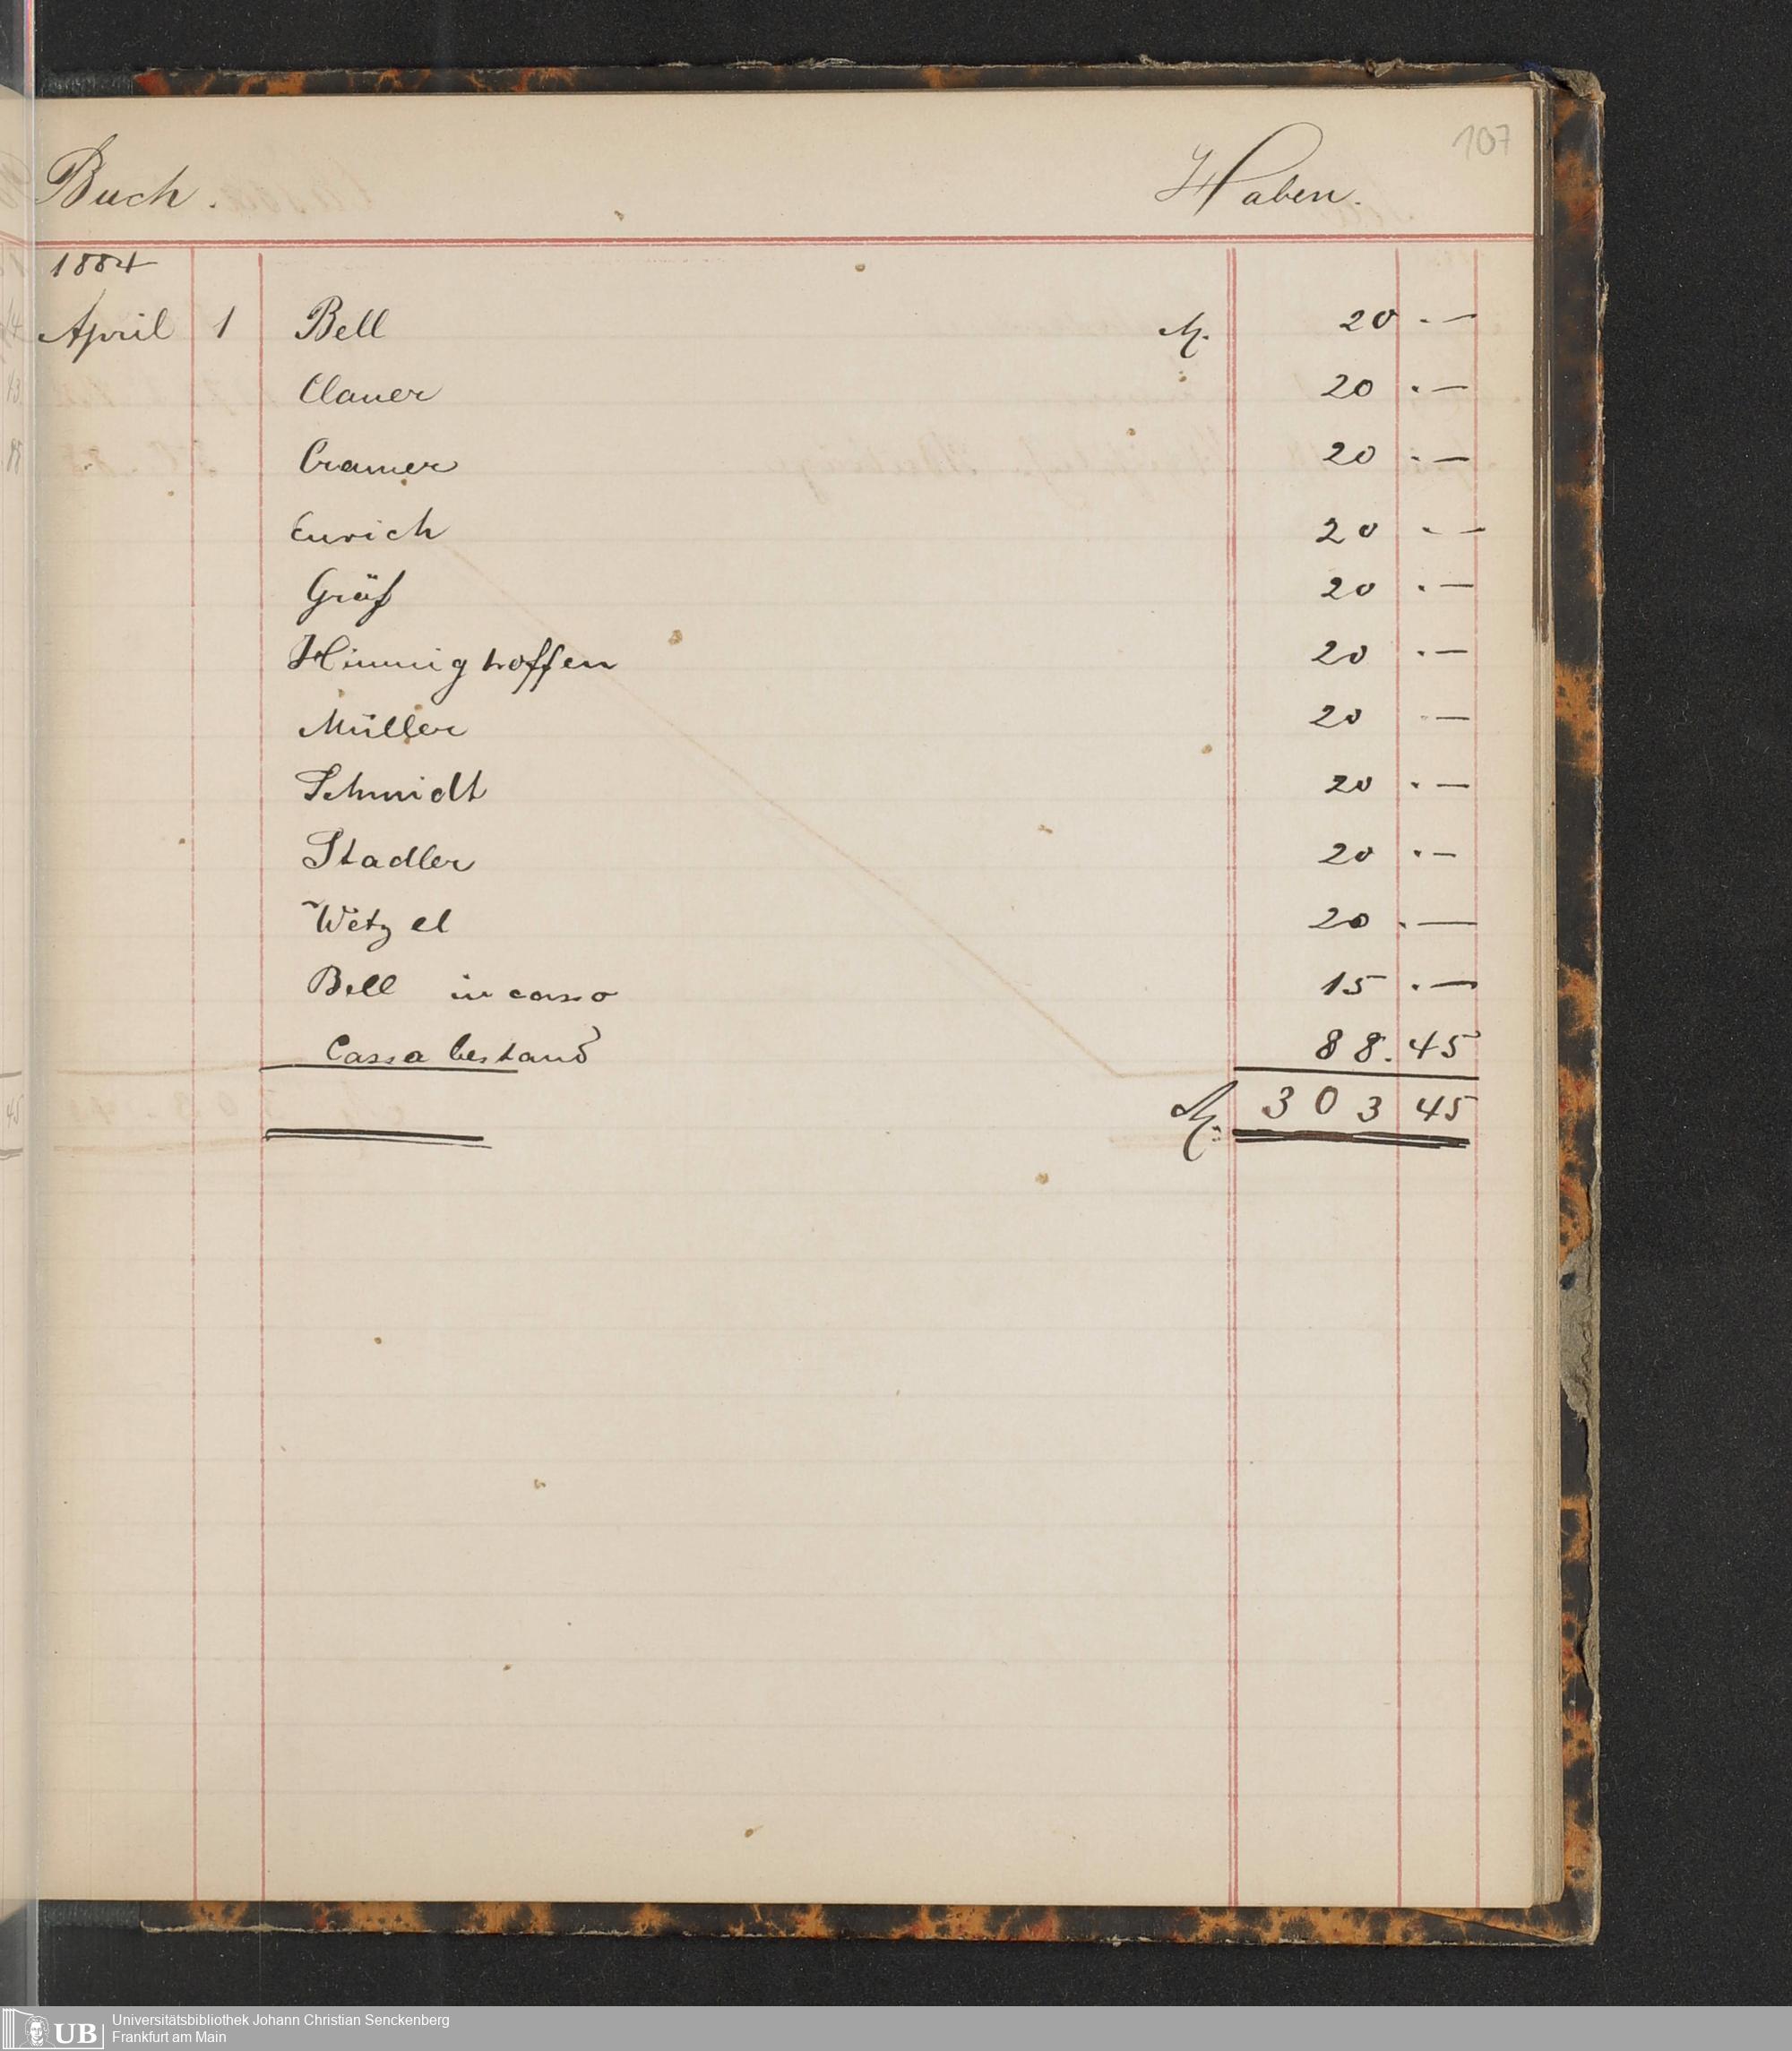 107
Buch. Haben.
1884
April 1 Bell M. 20 . —
Clauer 20 . —
Cramer 20 . —
Eurich 20 . —
Gräf 20 . —
Hinnighoffen 20 . —
Müller 20 . —
Schmidt 20 . —
Stadler 20 . —
Wetzel 20 . —
Bell incasso 15 . —
Cassa bestand 88. 45
M. 303 45
UB Universitätsbibliothek Johann Christian Senckenberg
Frankfurt am Main